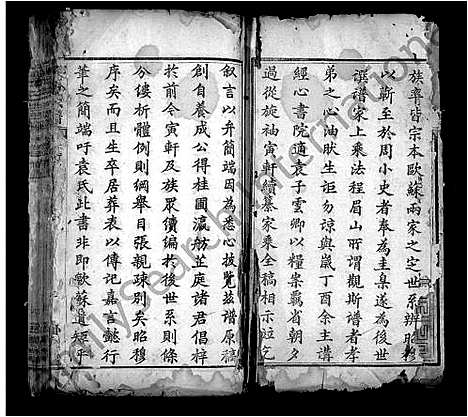 族尊皆宗本歐蘇兩家之定世系辨昭穆
以蘄至於周小史者奉為圭臬遂為後世
譔譜宋上乘法程眉山所謂觀斯譜者孝
弟之心油肰生詎勿諒與歲丁酉余主講
經心書院適袁子雲卿以糧祟羈省朝夕
過從旋袖寅軒續纂家乘全稿相示竝乞
叙言以弁簡端因為悉心披覽茲譜原稿
創自養成公得桂圃瀛舫芷庭諸君倡梓
於前今寅軒及族眾續編於後世系則條
分縷析體例則綱舉目張親疎別矣昭穆
序矣而且生卒居葬表以傳記嘉言懿行
華之簡端吁袁氏此書非即歐蘇遺經乎